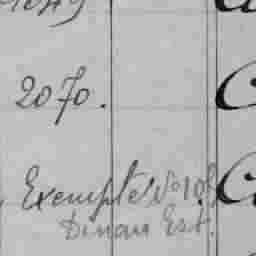 2070.
Exempté N° 108
Dinan Est.